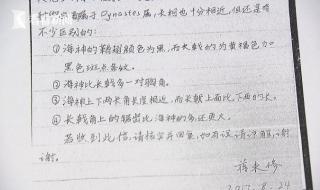 属于 Dynastes 属,长相也十分相近,但还是有
不少区别的:
① 海神的鞘翅颜色为黑,而长戟的为黄褐色加
黑色斑点条纹。
② 海神比长戟多一对胸角。
③ 海神上下两长角长度相近,而长戟上面比下面的长。
④ 长戟角上的锯齿比海神的多,还更大。
若收到此信,请核实并回复,如有误,请谅解,谢
谢。
蒋来修
2017.8.24